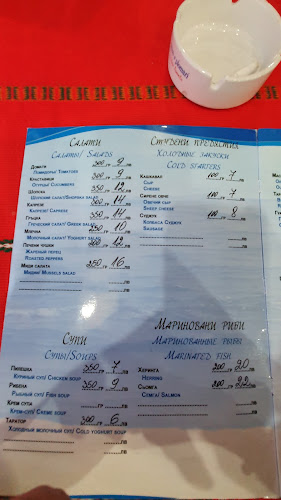 Салати
Салаты/ Salads
Домати 300 гр 9 лв
Помидоры/ Tomatoes
Краставици 300 гр 9 лв
Огурцы/ Cucumbers
Шопска 350 гр 12 лв
Шопский салат/Shopska salad
Капрезе 300 гр 14 лв
Капрезе/ Capress
Гръцка 350 гр 14 лв
Греческий салат/ Greek salad
Млечна 250 гр 10 лв
Молочный салат/ Yoghurt salad
Печени чушки 200 гр 12 лв
Жареный перец
Roasted peppers
Миди салата 250 гр 16 лв
Мидии/ Mussels salad
Супи
Супы/Soups
Пилешка 350 гр 7 лв
Куриный суп/ Chicken soup
Рибена 350 гр 9 лв
Рыбный суп/ Fish soup
Крем супа гр лв
Крем-суп/ Creme soup
Таратор 300 гр 6 лв
Холодный молочный суп/ Cold yoghurt soup
лв
Студени предястия
Холодные закуски
Cold starters
Кашкавал 100 гр 7 лв
Сыр
Cheese
Сирене овче 100 гр 7 лв
Овечий сыр
Sheep cheese
Суджук 100 гр 8 лв
Колбаса Суджук
Sausage
лв
лв
Мариновани риби
Маринованные рыбы
Marinated fish
Херинга 200 гр 20 лв
Herring
Сьомга 200 гр 22 лв
Семга/ Salmon
лв
лв